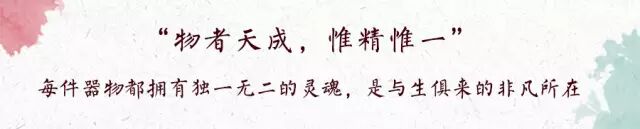 “物者天成，惟精惟一”
每件器物都拥有独一无二的灵魂，是与生俱来的非凡所在